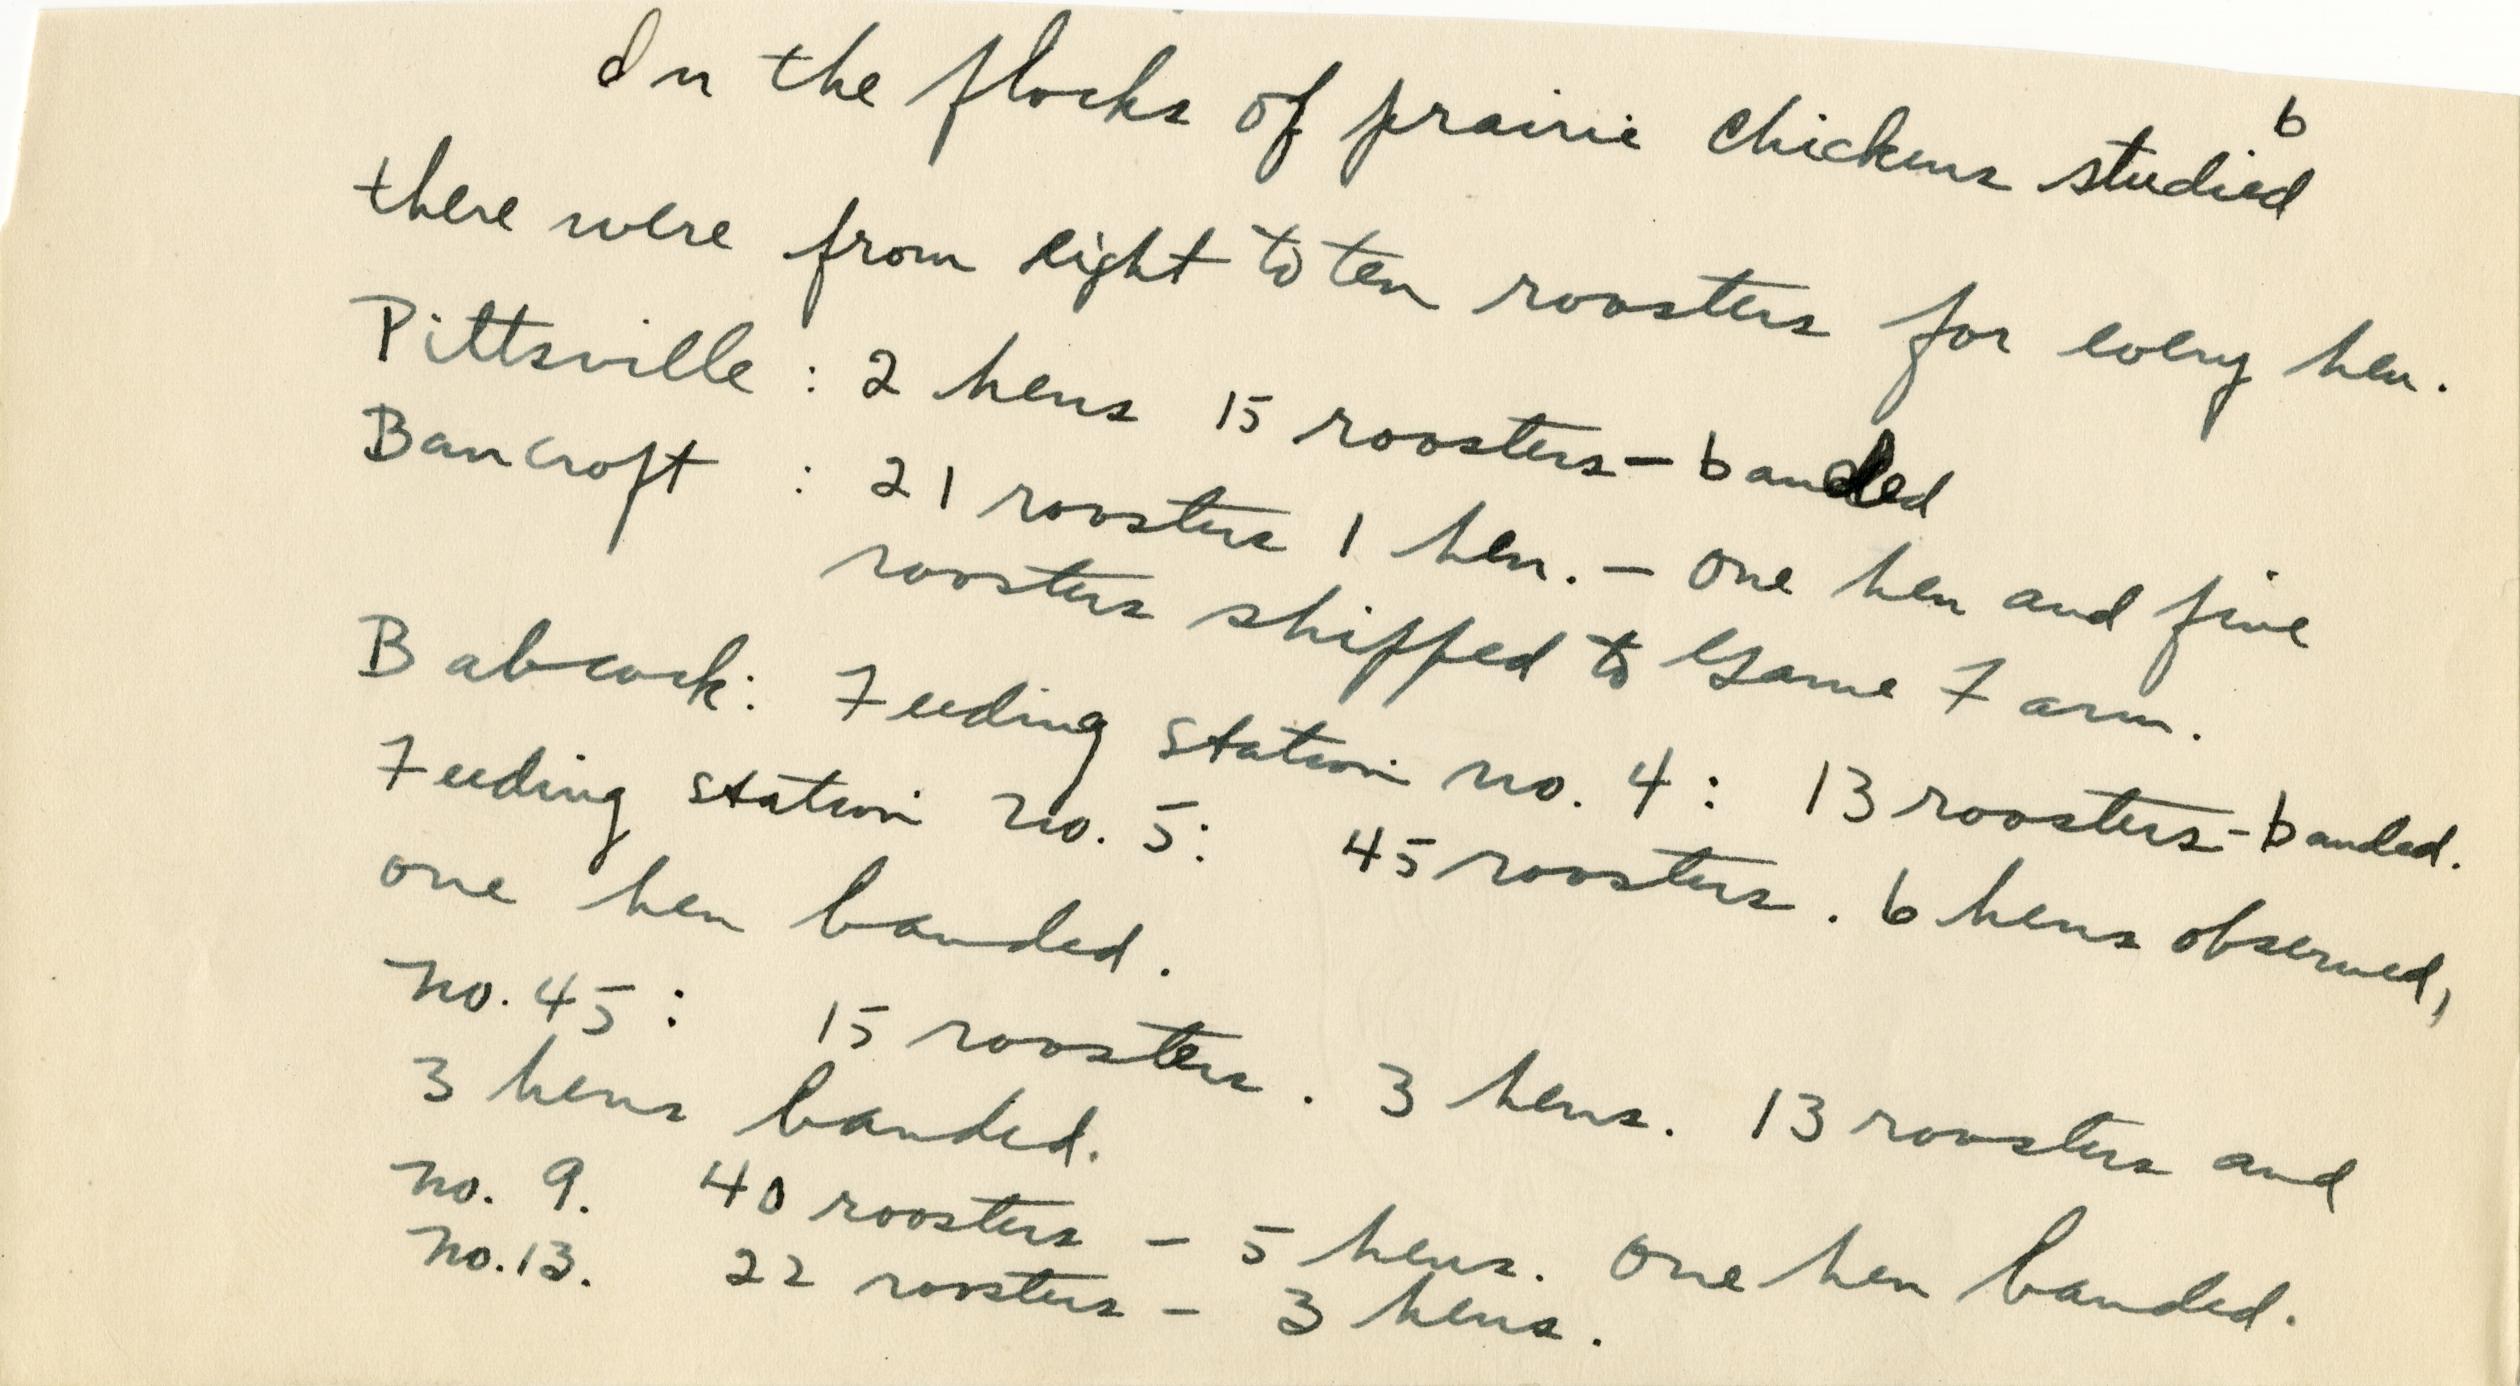 6
In the flocks of prairie chickens studied
there were from eight to ten roosters for every hen.
Pittsville : 2 hens 15 roosters - banded
Bancroft : 21 roosters 1 hen. - One hen and five
roosters shipped to Game Farm.
Babcock: Feeding station no. 4 : 13 roosters - banded.
Feeding station no. 5: 45 roosters. 6 hens observed,
one hen banded.
No. 45 : 15 roosters. 3 hens. 13 roosters and
3 hens banded.
No. 9. 40 roosters - 5 hens. One hen banded.
No. 13. 22 roosters - 3 hens.